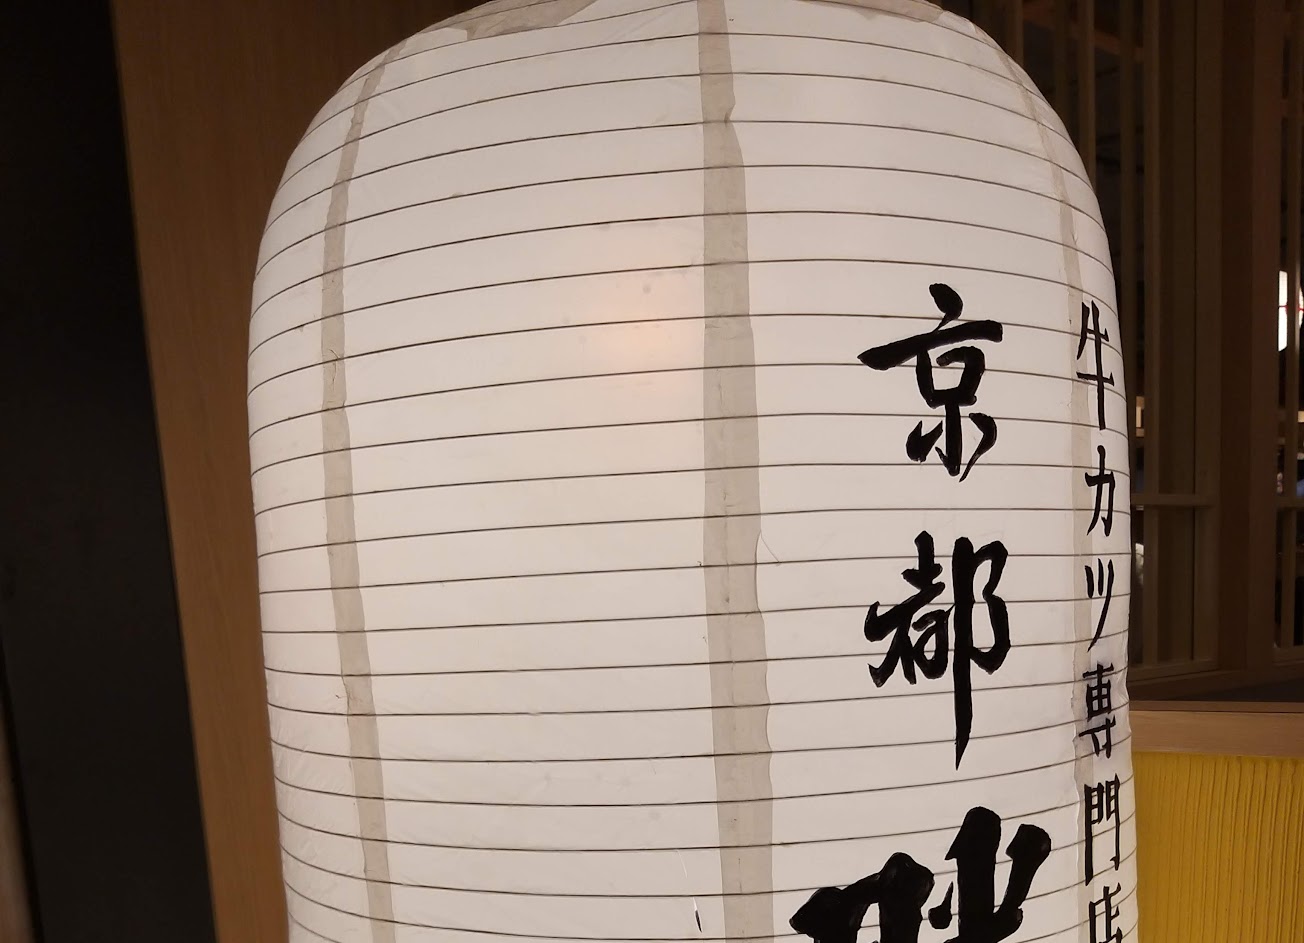 牛カツ専門店
京都